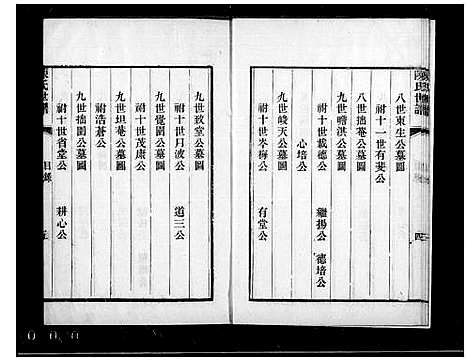 陳氏世譜
四
八世東生公墓圖
祔十一世有斐公
八世拙菴公墓圖
祔十世載德公 繼揚公 德培公
九世瞻淇公墓圖
心培公
九世峻天公墓圖
祔十世岑梅公 有堂公
九世玫堂公墓圖
祔十世月波公 道三公
九世覺圃公墓圖
祔十世茂康公
九世坦菴公墓圖
祔浩蒼公
九世拙圃公墓圖
祔十世省堂公 耕心公
目錄
五
0 0 0